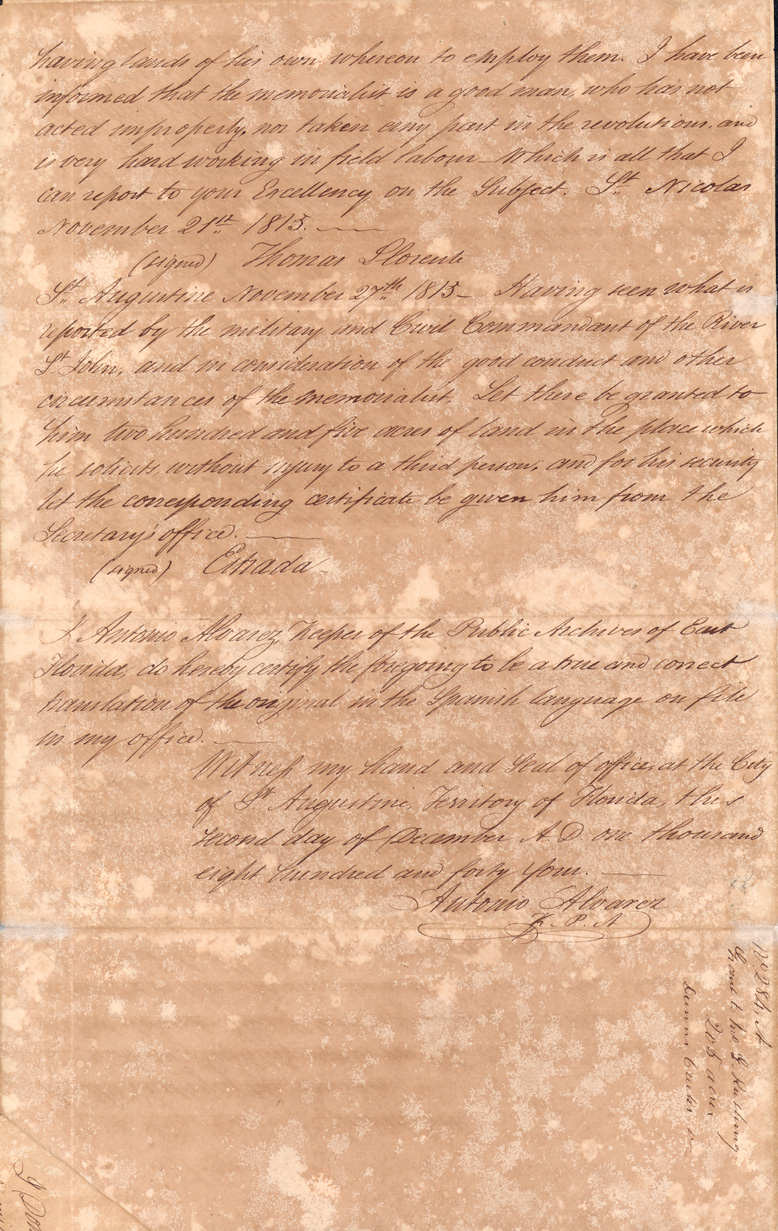 having lands of his own whereon to employ them. I have been
informed that the memorialist is a good man, who has not
acted improperly, nor taken any part in the revolutions, and
is very hard working in field labour—Which is all that I
can report to your Excellency on the Subject. St. Nicolas
November 21st. 1815.
(signed) Thomas Llorente
St. Augustine November 27th. 1815— Having seen what is
reported by the military and Civil Commandant of the River
St. John, and in consideration of the good conduct and other
circumstances of the memorialist. Let there be granted to
him two hundred and five acres of land in the place which
he solicits without injury to a third person, and for his security
let the corresponding certificate be given him from the
Secretary's office.
(signed) Estrada
I Antonio Alvarez, Keeper of the Public Archives of East
Florida, do hereby certify the foregoing to be a true and correct
translation of the original in the Spanish language on file
in my office.
Witness my hand and Seal of office, at the City
of St. Augustine, Territory of Florida, this
second day of December A.D. one thousand
eight hundred and forty four.
Antonio Alvarez
K. P. A
No 284. A
Grant to Jno G. Rushing
205 acres
Dunns Creek